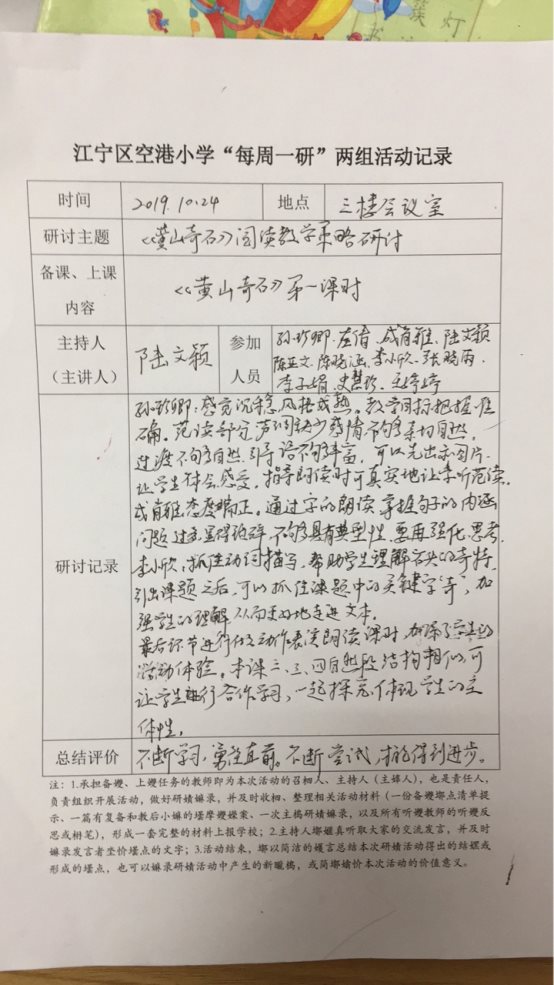 江宁区空港小学“每周一研”两组活动记录
时间 2019.10.24 地点 三楼会议室
研讨主题 《黄山奇石》阅读教学策略研讨
备课、上课
内容
《黄山奇石》第一课时
主持人
（主讲人）
陆文颖
参加
人员
孙珍卿、左倩、成有雅、陆文颖
陈亚文、陈晓涵、李小欣、张晓茜、
李子娟、史慧珍、
研讨记录
孙珍卿：感觉沉稳，风格成熟。教学目标把握准
确。范读部分声调缺少感情不够亲切自然，
过渡不够自然，引导语不够丰富，可以先出示图片
让学生体会感受。指导朗读时可真实地让来听范读。
成有雅：态度端正。通过字的朗读掌握句子的内涵
问题过 显得 不够具有典型性，要再强化思考。
李小欣：抓住动词描写，帮助学生理解 的奇特，
引出课题之后，可以抓住课题中的关键字“奇”，加
强学生的理解，从而更好地走进文本。
最后环节进行 动作表演朗读课时，加深了学生的
活动体验。本课二、三、四自然段结构相似，可
让学生进行合作学习，一起探究，体现学生的主
体性。
总结评价 不断学习，勇往直前。不断尝试，才能得到进步。
注：1.承担备嬡、上嬡任务的教师即为本次活动的召 人、主持人（主 人），也是责任人，
负责组织开展活动，做好研 录，并及时收 、整理相关活动材料（一份备嬡 点清单提
示、一篇有复备和教后小 的 摩嬡 案、一次主 研 录，以及所有听嬡教师的听嬡反
思或 笔），形成一套完整的材料上报学校；2.主持人 真听取大家的交流发言，并及时
录发言者 价 点的文字；3.活动结束， 以简洁的 言总结本次研 活动得出的结 或
形成的 点，也可以 录研 活动中产生的新 ，或简 价本次活动的价值意义。